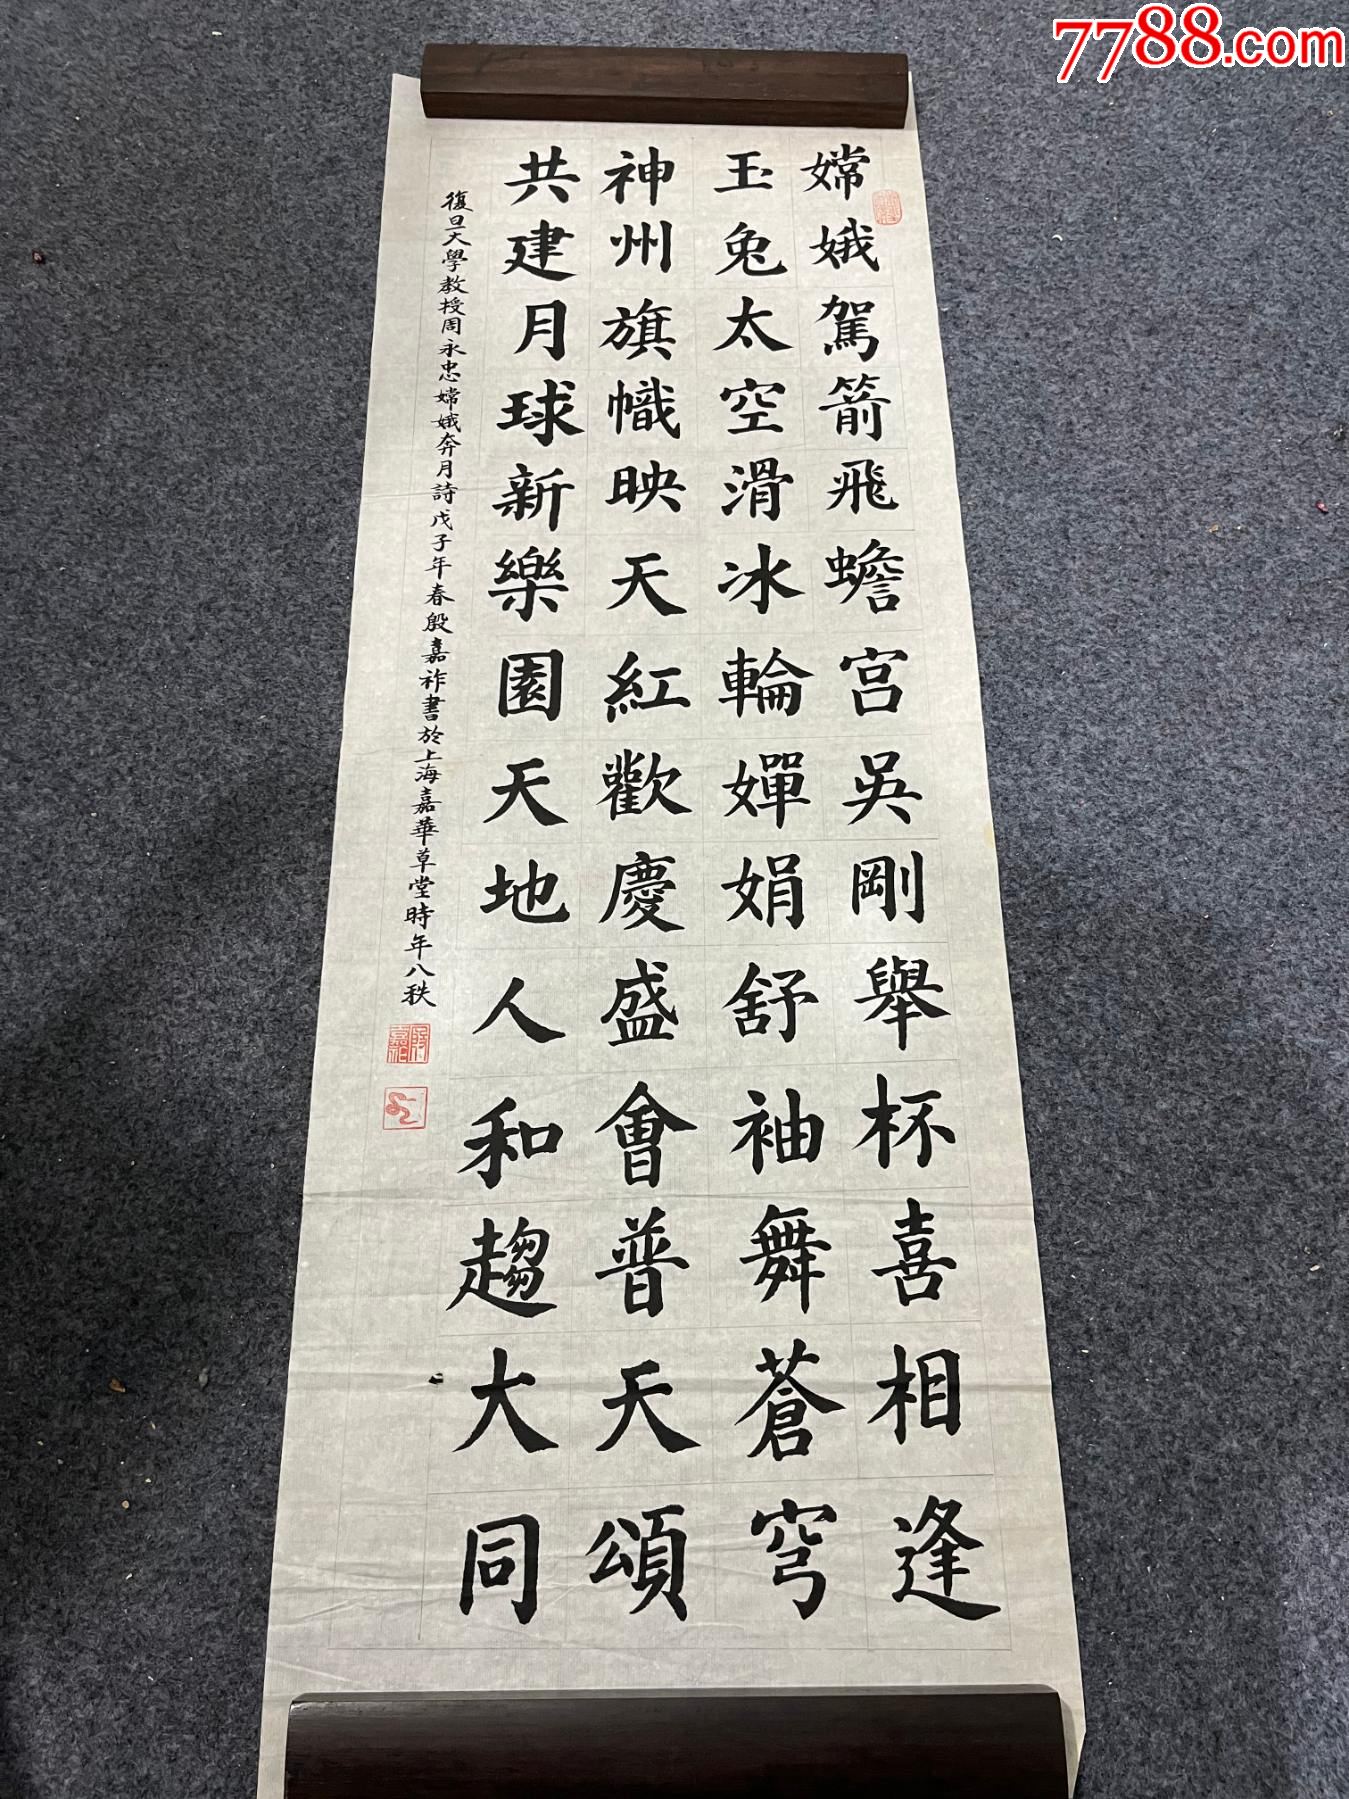 嫦娥駕箭飛蟾宮吳剛舉杯喜相逢
玉兔太空滑冰輪嬋娟舒袖舞蒼穹
神州旗幟映天紅歡慶盛會普天頌
共建月球新樂園天地人和趨大同
復旦大學教授周永忠嫦娥奔月詩戊子年春殷嘉祚書於上海嘉華草堂時年八秩
7788.com